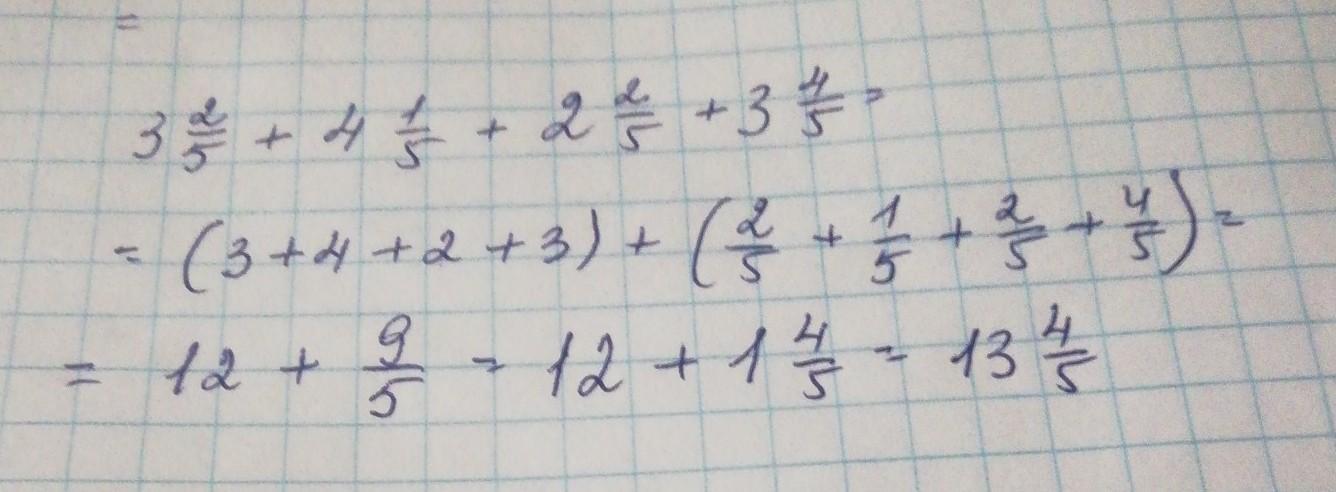 =
3 2/5 + 4 1/5 + 2 2/5 + 3 4/5 =
= (3 + 4 + 2 + 3) + (2/5 + 1/5 + 2/5 + 4/5) =
= 12 + 9/5 = 12 + 1 4/5 = 13 4/5